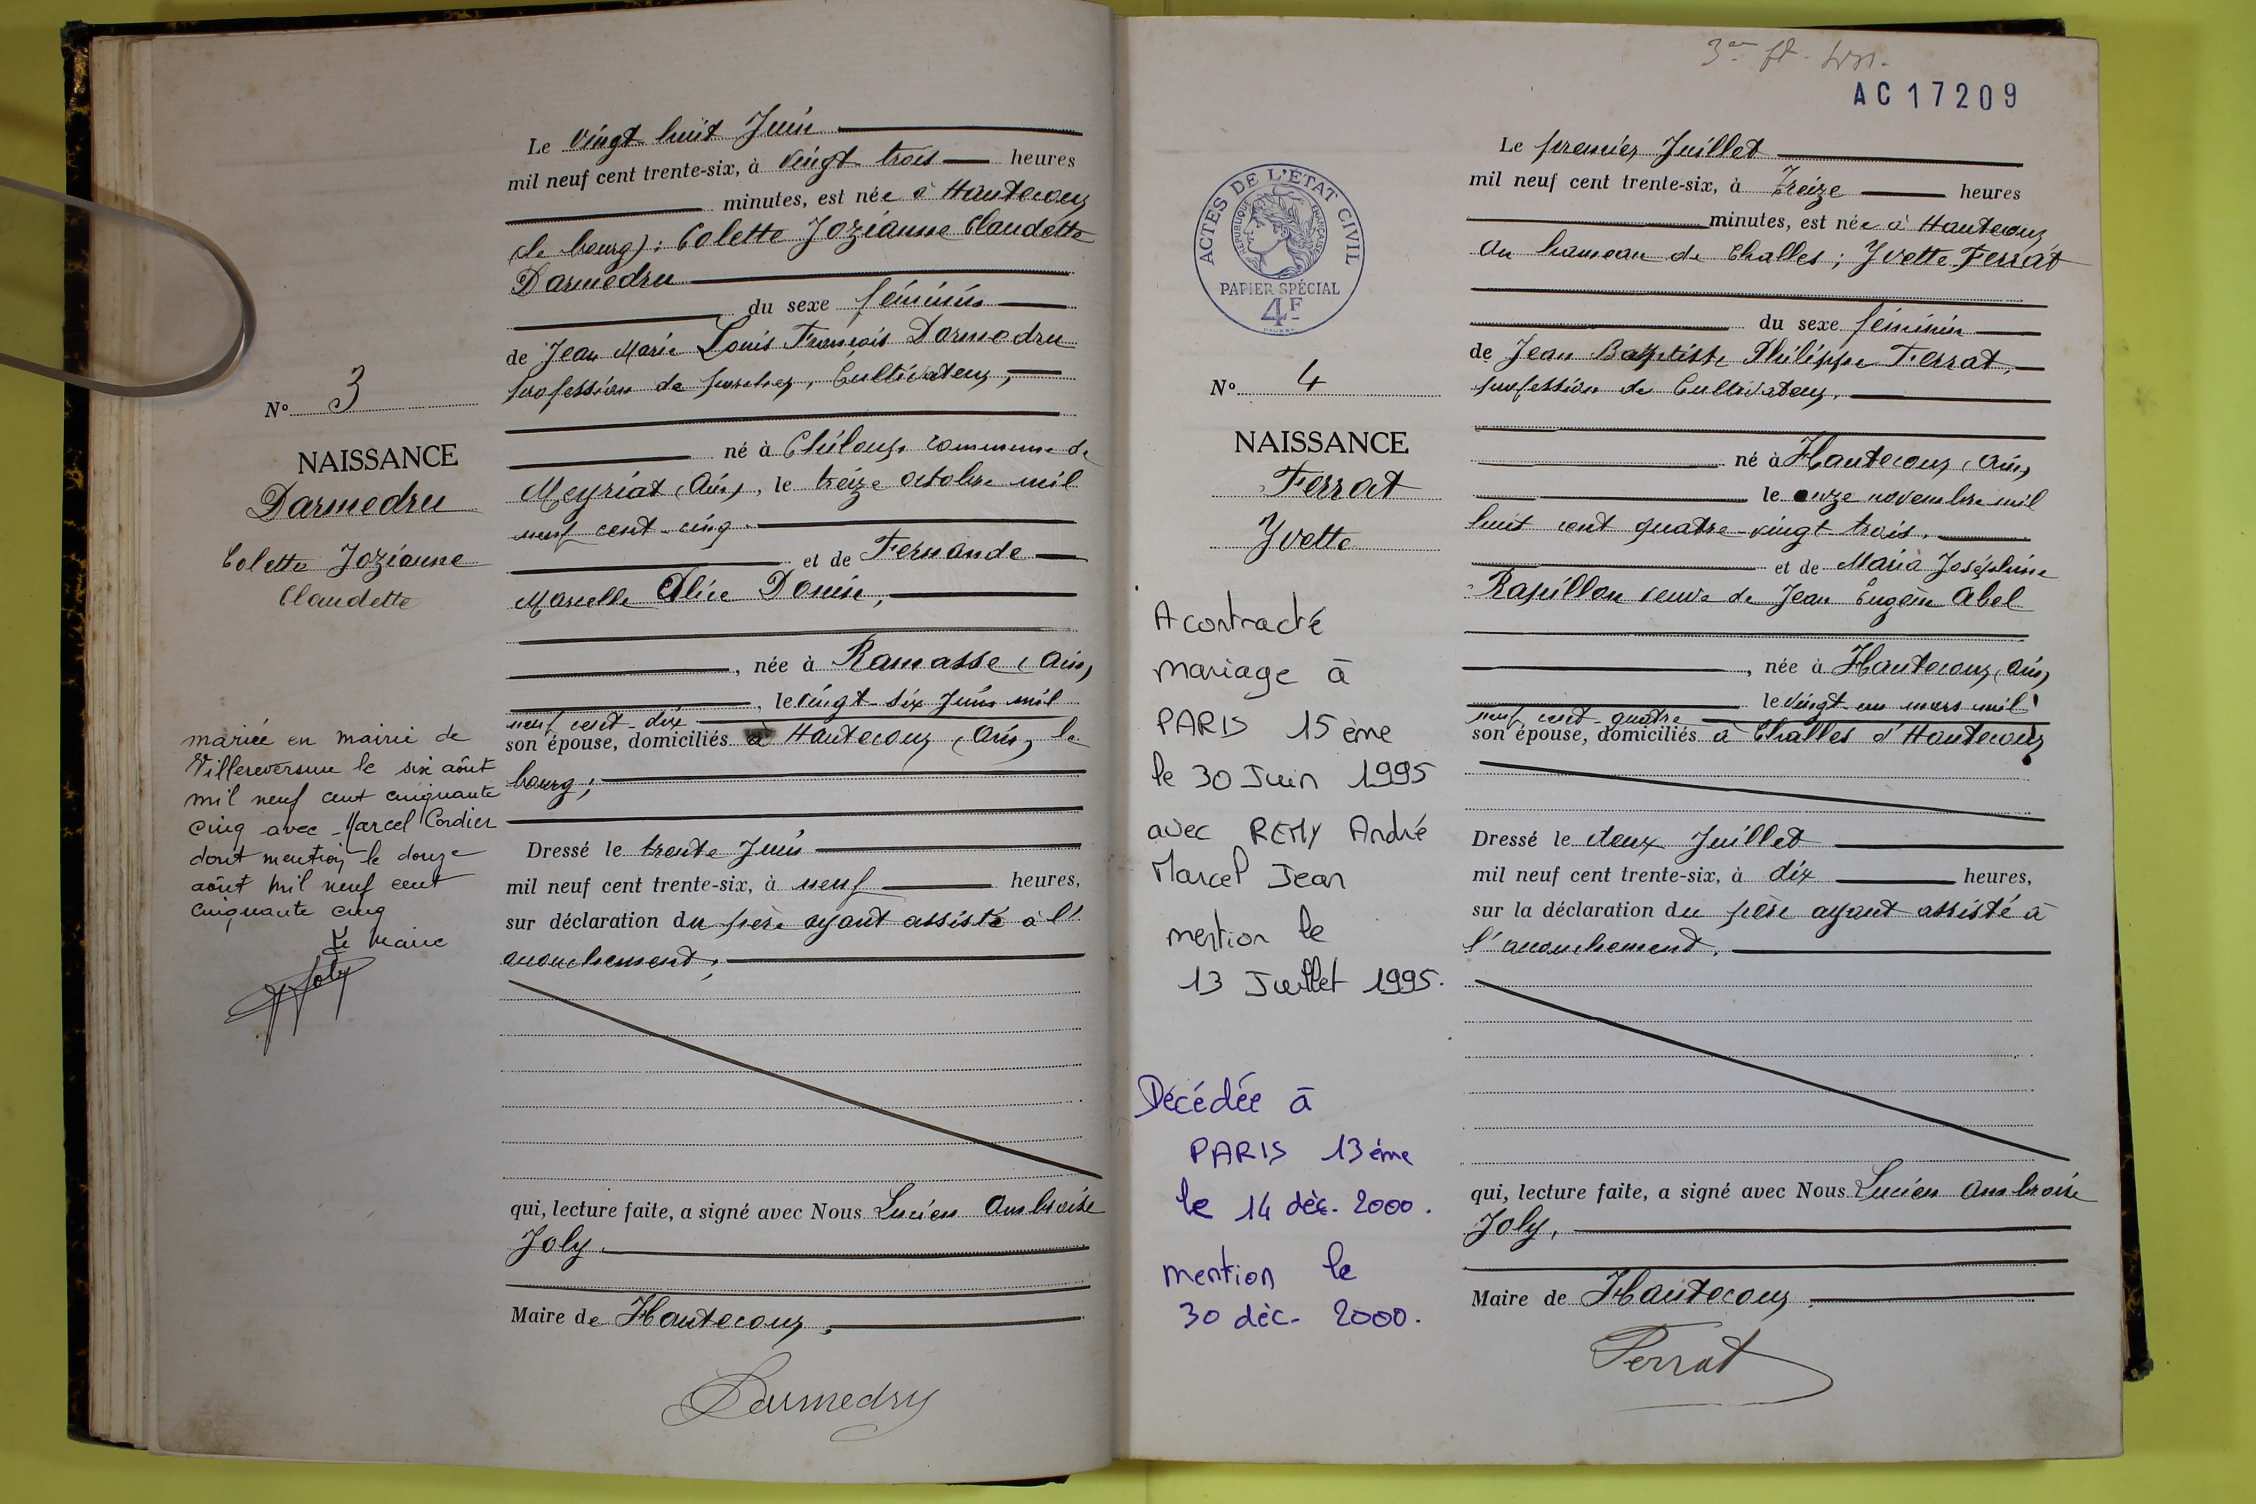 Le vingt huit Juin
mil neuf cent trente-six, à vingt trois heures
minutes, est née à Hautecour
(le bourg): Colette Jozianne Claudette
Darmedru
du sexe féminin
de Jean Marie Louis François Darmedru
profession de, Cultivateur,
N° 3
né à Chiloup commune de
NAISSANCE
Meyriat (Ain), le treize octobre mil
Darmedru
neuf cent cinq.
Colette Jozianne
et de Fernande
Claudette
Marcelle Alice Donin,
, née à Ramasse (Ain)
, le vingt-six Juin mil
neuf cent dix
son épouse, domiciliés à Hautecour (Ain) le
bourg;
mariée en mairie de
Villereversure le six août
mil neuf cent cinquante
cinq avec Marcel Cordier
dont mention le douze
août mil neuf cent
cinquante cinq
Le Maire
Joly
Dressé le trente Juin
mil neuf cent trente-six, à neuf heures,
sur déclaration du père ayant assisté à l'
accouchement;
qui, lecture faite, a signé avec Nous Lucien Ambroise
Joly.
Maire de Hautecour,
Darmedru
AC17209
Le premier Juillet
mil neuf cent trente-six, à Treize heures
minutes, est née à Hautecour
au hameau de Challes; Yvette Ferrat
ACTES DE L'ÉTAT CIVIL
RÉPUBLIQUE FRANÇAISE
PAPIER SPÉCIAL
4F
du sexe féminin
de Jean Baptiste Philippe Ferrat,
profession de Cultivateur.
N° 4
NAISSANCE
né à Hautecour (Ain)
Ferrat
le onze novembre mil
Yvette
huit cent quatre-vingt trois.
et de Maria Joséphine
Rapillon veuve de Jean Eugène Abel
, née à Hautecour (Ain)
le vingt un mars mil
neuf cent quatre
son épouse, domiciliés à Challes d'Hautecour
A contracté
mariage à
PARIS 15ème
le 30 Juin 1995
avec REMY André
Marcel Jean
mention le
13 Juillet 1995.
Dressé le deux Juillet
mil neuf cent trente-six, à dix heures,
sur la déclaration du père ayant assisté à
l'accouchement.
Décédée à
PARIS 13ème
le 14 déc. 2000.
mention le
30 déc. 2000.
qui, lecture faite, a signé avec Nous Lucien Ambroise
Joly,
Maire de Hautecour.
Ferrat